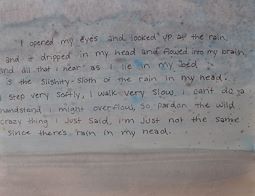 I opened my eyes and looked up at the rain,
and it dripped in my head and flowed into my brain,
and all that i hear as i lie in my bed
is the slishity-slosh of the rain in my head.
I step very softly, I walk very slow, i cant do a
handstand i might overflow, so pardon the wild
crazy thing I just said, i'm just not the same
since there's rain in my head.